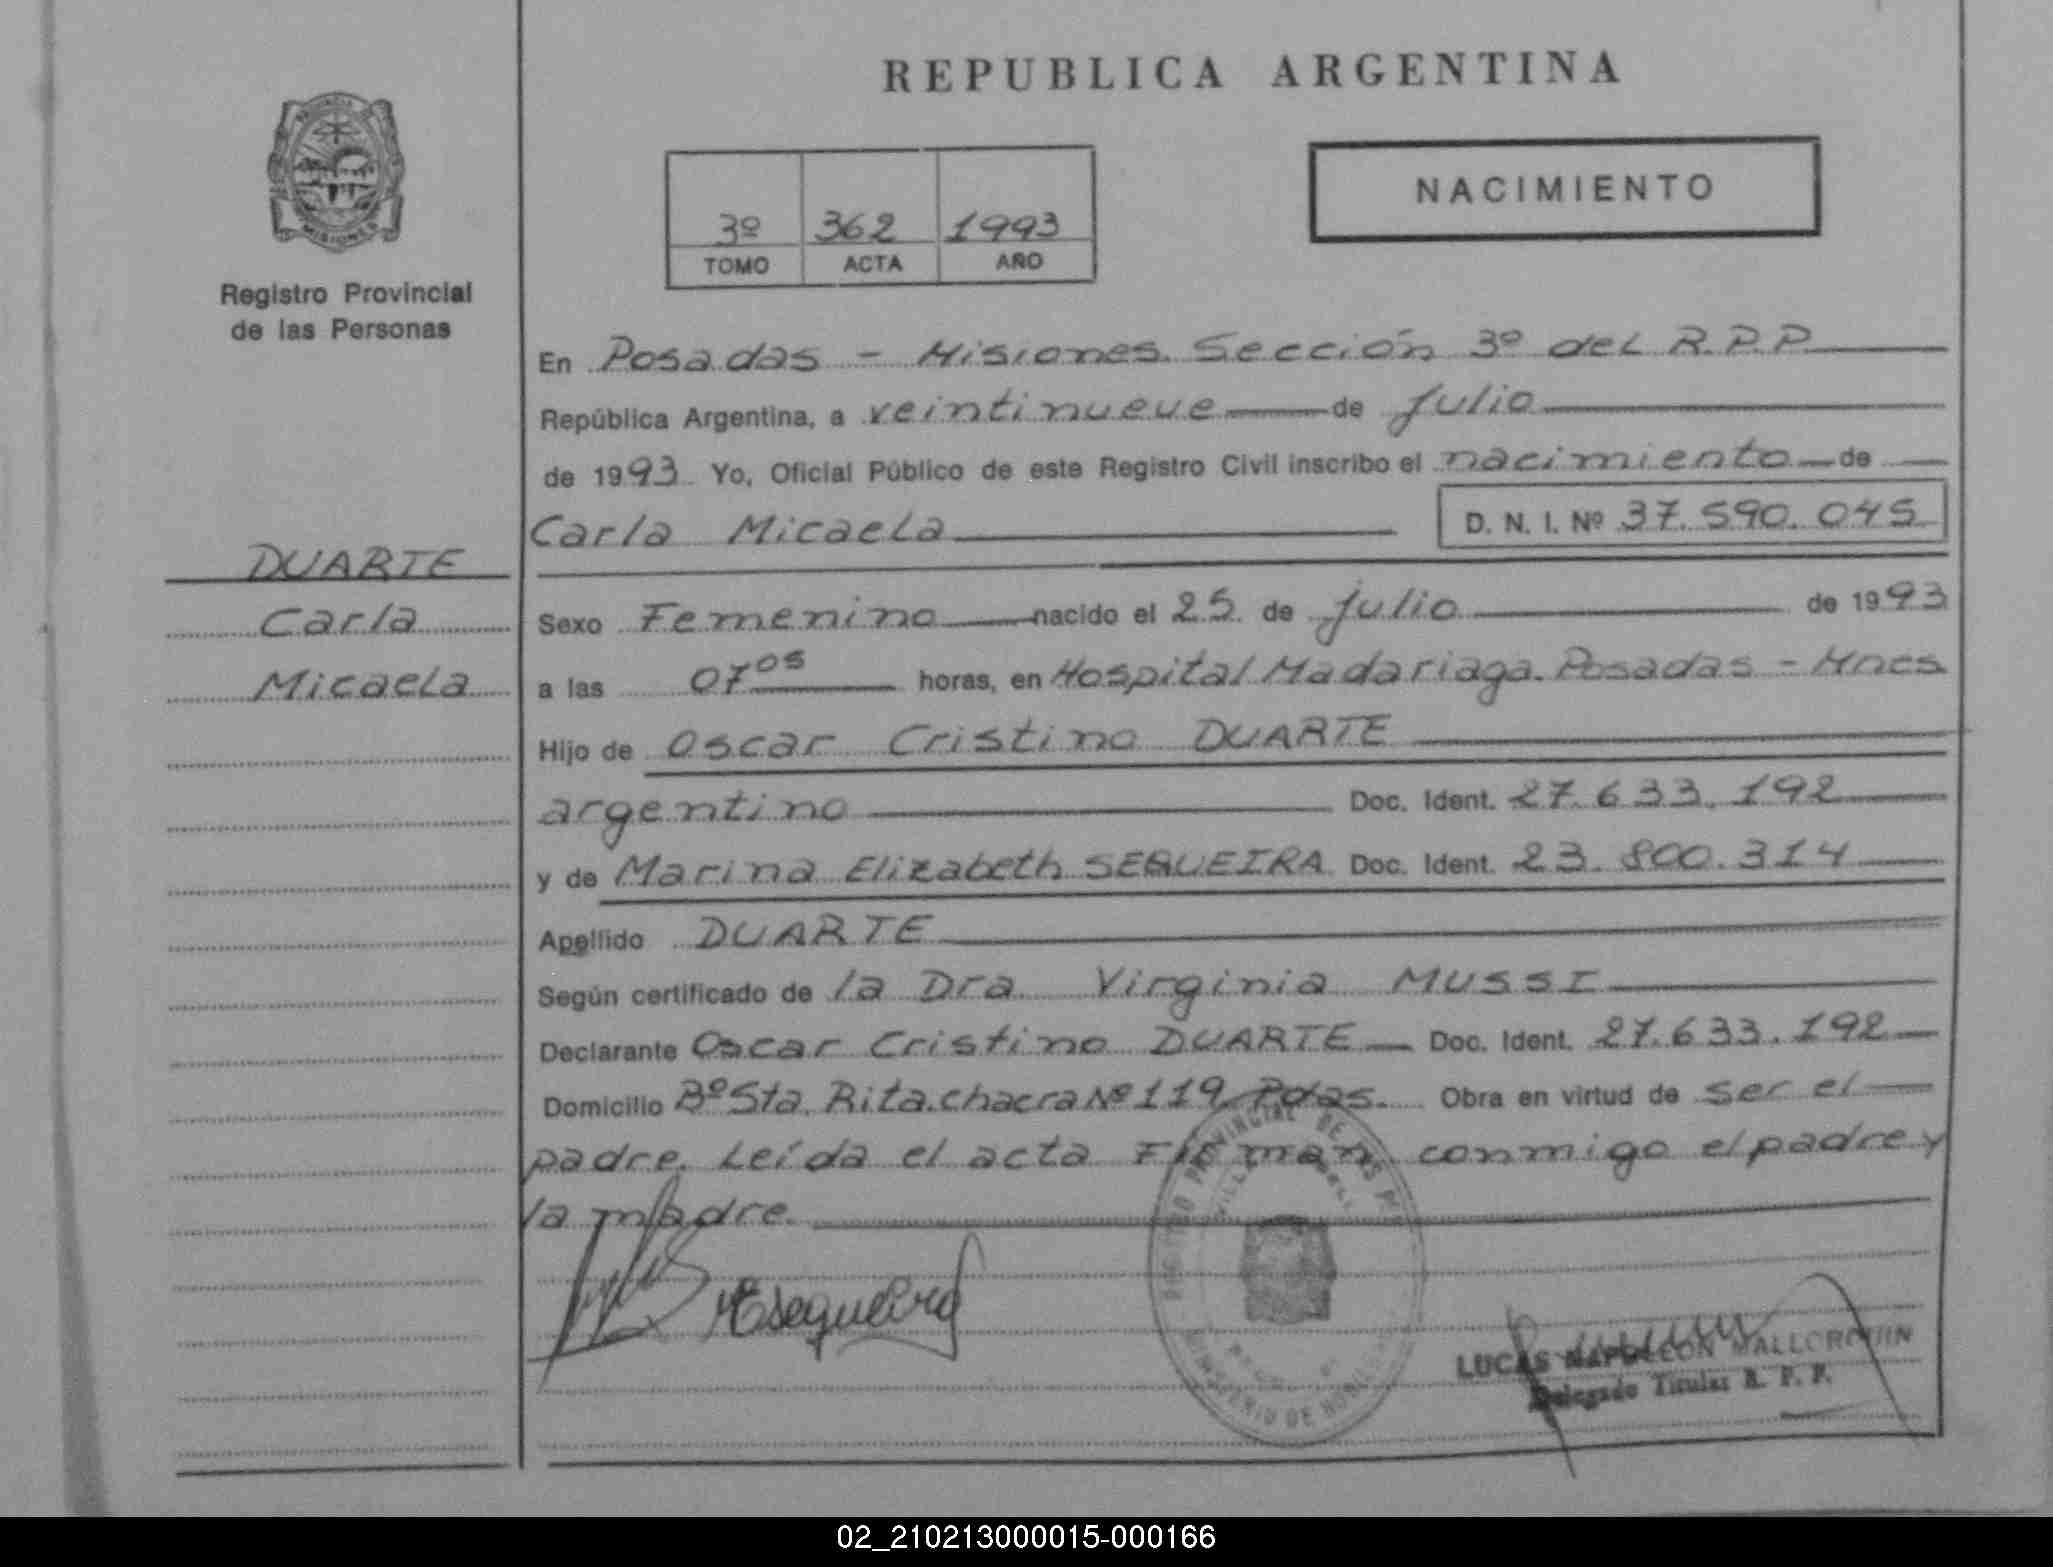 REPUBLICA ARGENTINA
NACIMIENTO
3º 362 1993
TOMO ACTA AÑO
MISIONES
Registro Provincial
de las Personas
En Posadas - Misiones. Sección 3º del R.P.P.
República Argentina, a veintinueve de julio
de 1993 Yo, Oficial Público de este Registro Civil inscribo el nacimiento de
Carla Micaela D. N. I. Nº 37.590.045
DUARTE
Carla
Micaela
Sexo Femenino nacido el 25 de julio de 1993
a las 07 05 horas, en Hospital Madariaga. Posadas - Mnes
Hijo de Oscar Cristino DUARTE
argentino Doc. Ident. 27.633.192
y de Marina Elizabeth SEQUEIRA Doc. Ident. 23.800.314
Apellido DUARTE
Según certificado de la Dra Virginia MUSSI
Declarante Oscar Cristino DUARTE Doc. Ident. 27.633.192
Domicilio Bº Sta. Rita. chacra Nº 119 Pdas. Obra en virtud de ser el
padre. Leída el acta Firman conmigo el padre y
la madre.
MEsequeira
LUCAS NAPOLEON MALLORQUIN
Delegado Titular R. P. P.
02_210213000015-000166